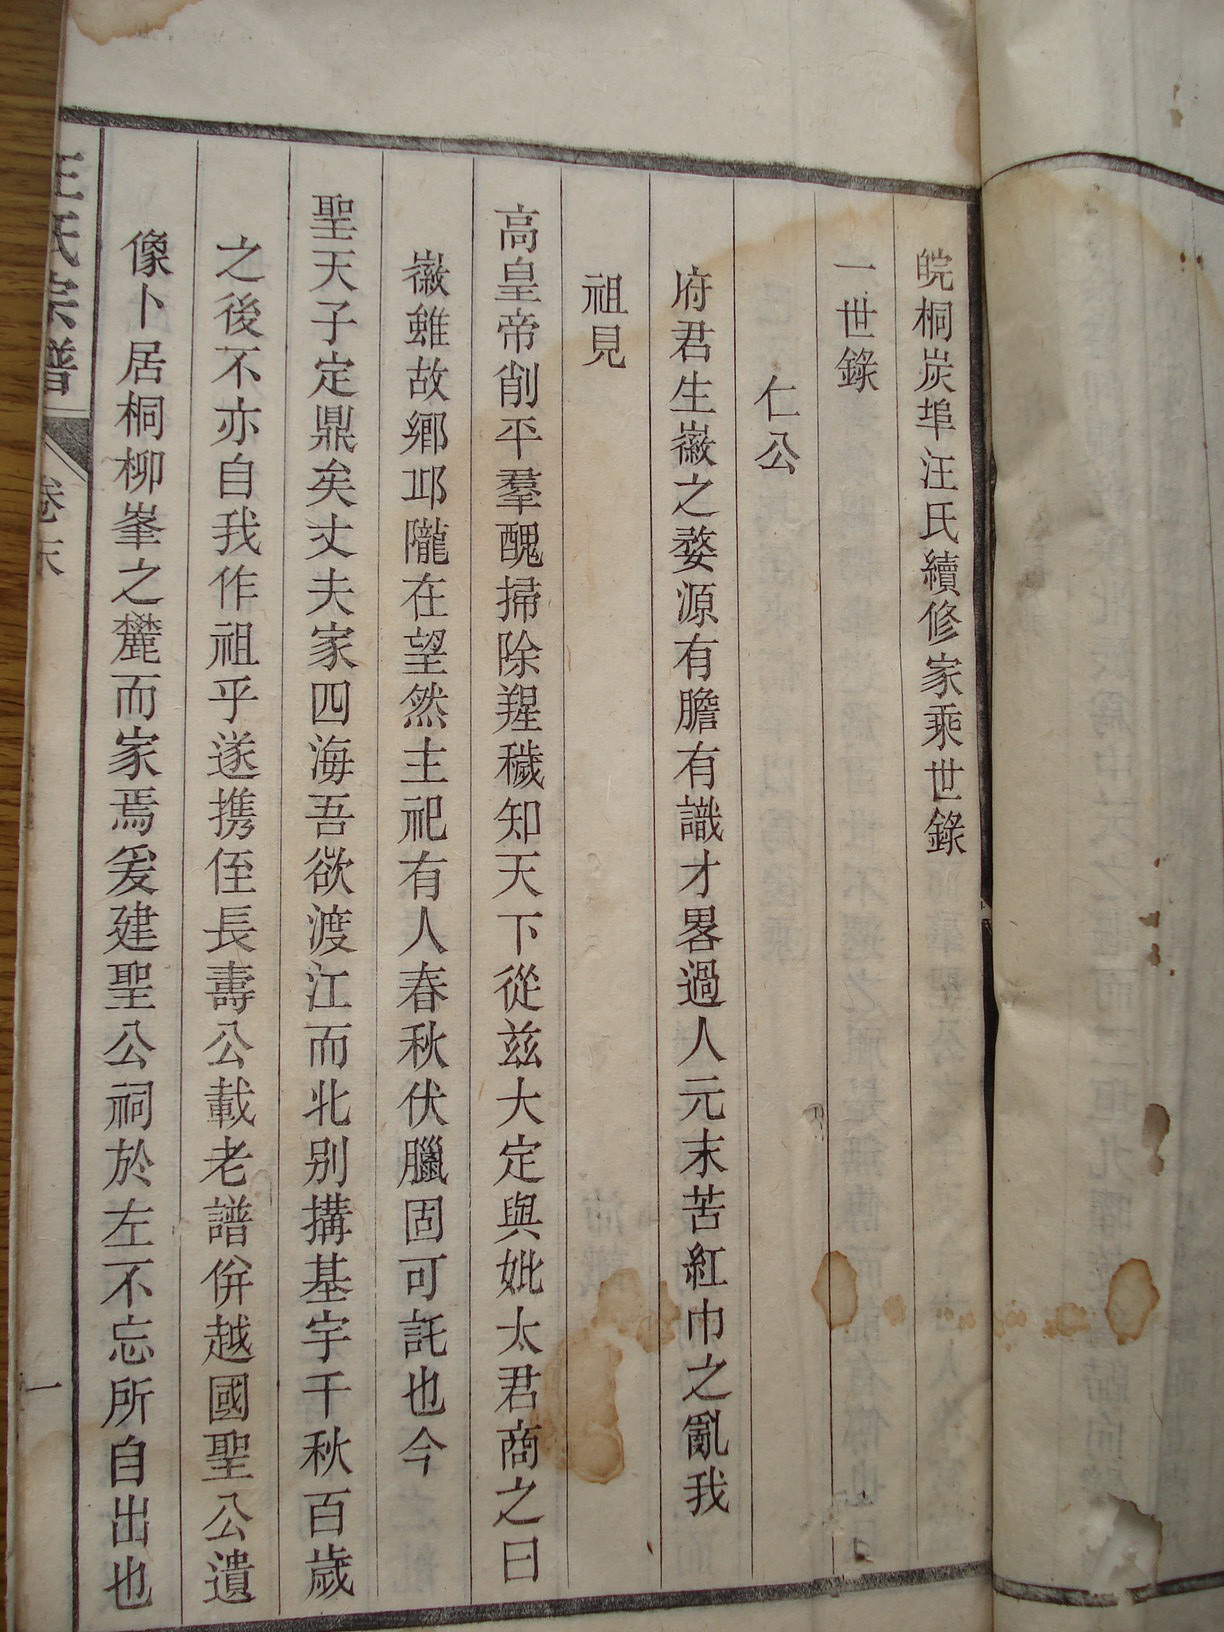 皖桐炭埠汪氏續修家乘世錄
一世錄
仁公
府君生徽之婺源有膽有識才畧過人元末苦紅巾之亂我
祖見
高皇帝削平羣醜掃除羶穢知天下從兹大定與妣太君商之曰
徽雖故鄉邛隴在望然主祀有人春秋伏臘固可託也今
聖天子定鼎矣丈夫家四海吾欲渡江而北别搆基宇千秋百歲
之後不亦自我作祖乎遂携侄長壽公載老譜併越國聖公遺
像卜居桐柳峯之麓而家焉爰建聖公祠於左不忘所自出也
汪氏宗譜
卷末
一